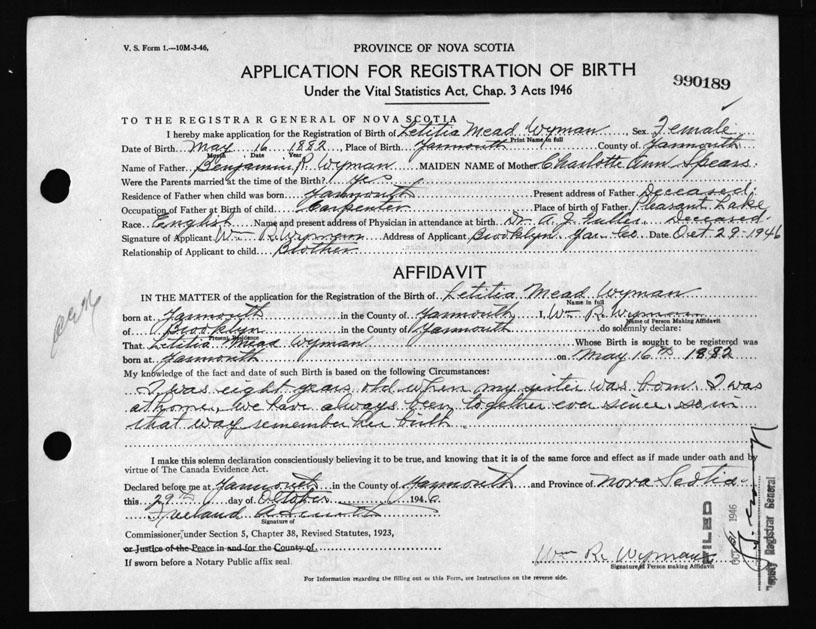 V. S. Form 1.—10M-3-46,
PROVINCE OF NOVA SCOTIA
APPLICATION FOR REGISTRATION OF BIRTH
990189
Under the Vital Statistics Act, Chap. 3 Acts 1946
TO THE REGISTRAR GENERAL OF NOVA SCOTIA
I hereby make application for the Registration of Birth of Letitia Mead Wyman, Sex Female
Print Name in full
Date of Birth May 16 1882 Place of Birth Yarmouth County of Yarmouth
Month Date Year
Name of Father Benjamin R. Wyman MAIDEN NAME of Mother Charlotte Ann Spears.
Were the Parents married at the time of Birth? Yes
Residence of Father when child was born Yarmouth Present address of Father Deceased.
Occupation of Father at Birth of child Carpenter Place of birth of Father Pleasant Lake
Race English Name and present address of Physician in attendance at birth Dr. A. J. Fuller Deceased.
Signature of Applicant Wm R. Wymann Address of Applicant Brooklyn Yar. Co Date Oct 29-1946
Relationship of Applicant to child Brother
AFFIDAVIT
IN THE MATTER of the application for the Registration of Birth of Letitia Mead Wyman
Name in full
born at Yarmouth in the County of Yarmouth I, Wm R. Wyman
Name of Person Making Affidavit
of Brooklyn in the County of Yarmouth do solemnly declare:
Present Residence
That Letitia Mead Wyman Whose Birth is sought to be registered was
born at Yarmouth on May 16th 1882
My knowledge of the fact and date of such Birth is based on the following Circumstances:
I was eight years old when my sister was born. I was
at home, We have always been together ever since. so in
that way remember her birth.
I make this solemn declaration conscientiously believing it to be true, and knowing that it is of the same force and effect as if made under oath and by
virtue of The Canada Evidence Act.
Declared before me at Yarmouth in the County of Yarmouth and Province of Nova Scotia.
this 29th day of October 1946
Signature of
Commissioner, under Section 5, Chapter 38, Revised Statutes, 1923,
or Justice of the Peace in and for the County of
If sworn before a Notary Public affix seal
Wm R. Wymann
Signature of Person making Affidavit
FILED
OCT 31 1946
Deputy Registrar General
For Information regarding the filling out of this Form, see Instructions on the reverse side.